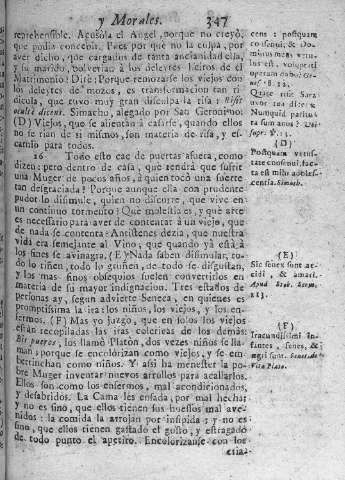 y Morales. 347
reprehensible. Acusóla el Angel, porque no creyó,
que podia concebir. Pues por què no la culpa, por
aver dicho, que cargados de tanta ancianidad ella,
y su marido, bolverian à los deleytes licitos de el
Matrimonio? Dirè: Porque remozarse los viejos con
los deleytes de mozos, es transformacion tan ri-
dicula, que tuvo muy gran disculpa la risa: Risit
occultè dicens. Simacho, alegado por San Geronimo:
(D) Viejos, que se afrentan à casarse, quando ellos
no se rian de si mismos, son materia de risa, y es-
carnio para todos.
16 Todo esto cae de puertas afuera, como
dizen; pero dentro de casa, què tendrà que sufrir
una Muger de pocos años, à quien tocò una suerte
tan desgraciada? Porque aunque ella con prudente
pudor lo disimule, quien no discurre, que vive en
un continuo tormento? Què molestia es, y què arte
es necesario para aver de contentar à un viejo, que
de nada se contenta? Antistenes dezia, que nuestra
vida era semejante al Vino, que quando yà està à
los fines se avinagra. (E) Nada saben disimular, to-
do lo riñen, todo lo guiñen, de todo se disgustan,
y los mas finos obsequios suelen convertirlos en
materia de su mayor indignacion. Tres estados de
personas ay, segun advierte Seneca, en quienes es
promptissima la ira: los niños, los viejos, y los en-
fermos. (F) Mas yo juzgo, que en solos los viejos
estàn recopiladas las iras colericas de los demàs:
Bis pueros, los llamò Platòn, dos vezes niños se lla-
man; porque se encolorizan como viejos, y se em-
berrinchan como niños. Y assi hà menester la po-
bre Muger inventar nuevos arrullos para acallarlos.
Ellos son como los enfermos, mal acondicionados,
y desabridos. La Cama les enfada, por mal hecha;
y no es sino, que ellos tienen sus huessos mal ave-
nidos: la comida la arrojan por insipida; y no es si-
no, que ellos tienen gastado el gusto, y estragado
de todo punto el apetito. Encolorizanse con los
cria-
cens: postquam
consenui, & Do-
minus meus vetu-
lus est, voluptati
operam dabo? Ge-
nes. 18. 12.
Quare risit Sara
uxor tua dicens:
Nunquid paritu-
ra sum anus? Ibi-
supr. ℣. 13.
(D)
Postquam vetus-
tate consenui, fac-
ta est mihi adoles-
centia. Simach.
(E)
Sic senes sunt ac-
cidi, & amari.
Apud Stob. Serm.
113.
(F)
Iracundissimi in-
fantes, senes, &
ægri sunt. Senec. de
Vita Plato.